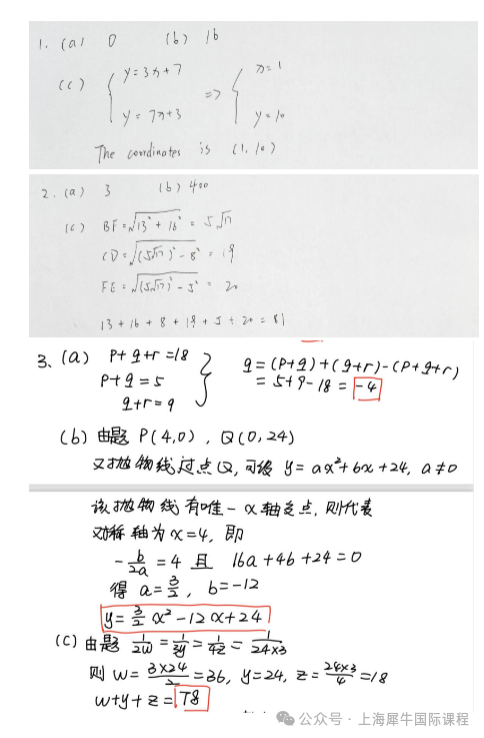 1. (a) 0 (b) 16
(c) { y = 3x+7 => { x=1
y = 7x+3 y=10
The coordinates is (1,10)
2. (a) 3 (b) 400
(c) BF = √(13²+16²) = 5√17
CD = √((5√17)²-8²) = 19
FE = √((5√17)²-5²) = 20
13+16+8+19+5+20=81
3. (a) p+q+r=18
p+q=5
q+r=9
} q=(p+q)+(q+r)-(p+q+r)
=5+9-18=-4
(b) 由题 P(4,0), Q(0,24)
又抛物线过点Q,可设 y=ax²+bx+24, a≠0
该抛物线有唯一x轴交点,则代表
对称轴为x=4,即
-b/2a=4 且 16a+4b+24=0
得 a=3/2, b=-12
y=3/2x²-12x+24
(c) 由题 1/2w=1/3y=1/4z=1/(24×3)
则 w=(3×24)/2=36, y=24, z=(24×3)/4=18
w+y+z=78
公众号·上海犀牛国际课程